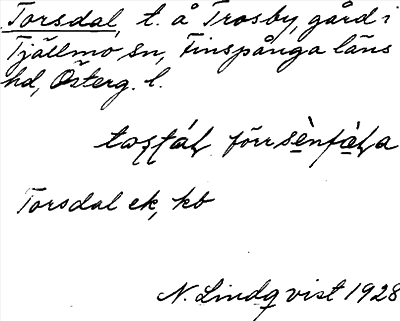 Torsdal, t. å Trosby, gård i
Tjällmo sn, Finspånga läns
hd, Österg. l.
Torsdal ek, kb
N. Lindqvist 1928